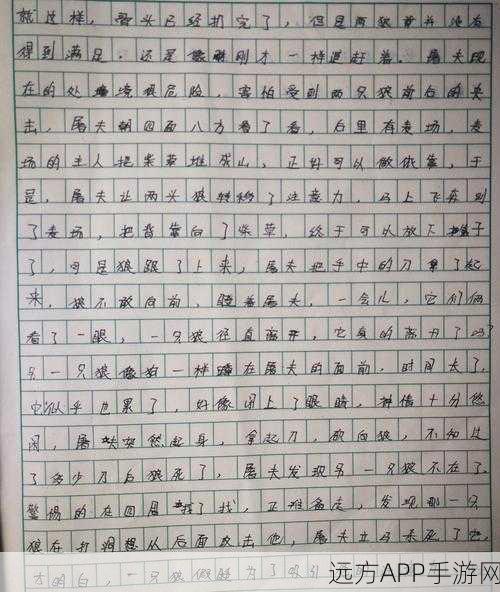 就过样，骨头已经扔完了，但是两狼并没有
得到满足．还是像刚才一样追赶着．屠夫现
在的处境很危险，害怕受到两只狼前后的夹
击，屠夫朝四面八方看了看，后里有麦场，麦
场的主人把柴草堆成山，正好可以做依靠，于
是，屠夫让两头狼转移了注意力，马上飞奔到
了麦场，把背靠向了柴草，终于可以放下担子
了，可是狼跟了上来，屠夫把手中的刀拿了起
来，狼不敢向前，瞪着屠夫，一会儿，它们俩
看了一眼，一只狼径直离开，它真的离开了吗？
另一只狼像狗一样蹲在屠夫的面前，时间久了，
它似乎也累了，好像闭上了眼睛，神情十分悠
闲，屠夫突然起身，拿起刀，砍向狼，不知过
了多少刀后狼死了，屠夫发现另一只狼不在了．
警惕的在四周找了找，正准备走，发现那一只
狼在打洞想从后面攻击他，屠夫立马杀死了它，
才明白，一只狼假睡为了吸引
远方APP手游网